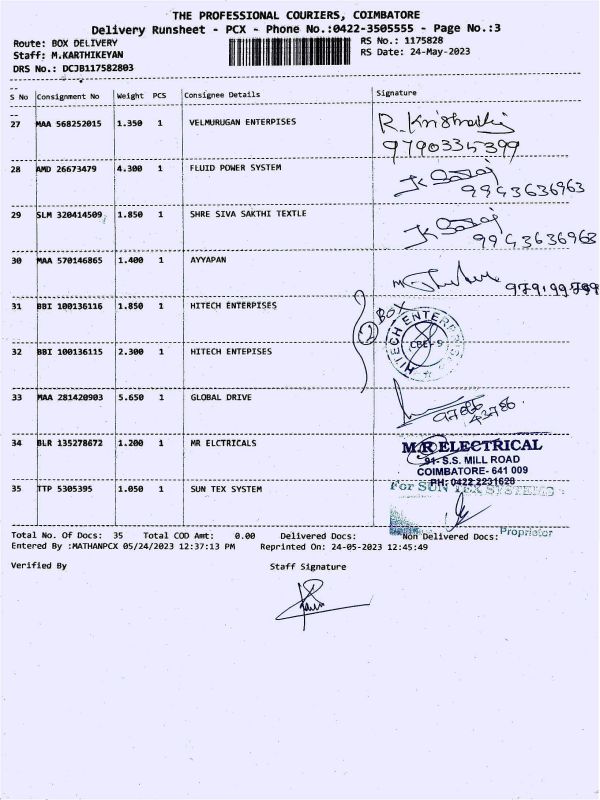 THE PROFESSIONAL COURIERS, COIMBATORE
Delivery Runsheet - PCX - Phone No.:0422-3505555 - Page No.:3
Route: BOX DELIVERY RS No.: 1175828
Staff: M.KARTHIKEYAN RS Date: 24-May-2023
DRS No.: DCJB117582803
S No Consignment No Weight PCS Consignee Details Signature
27 MAA 568252015 1.350 1 VELMURUGAN ENTERPISES
9790335399
28 AMD 26673479 4.300 1 FLUID POWER SYSTEM
9943636963
29 SLM 320414509 1.850 1 SHRE SIVA SAKTHI TEXTLE
9943636963
30 MAA 570146865 1.400 1 AYYAPAN
31 BBI 100136116 1.850 1 HITECH ENTERPISES
2 BOX
HITECH ENTERPRISES
CBE-9
32 BBI 100136115 2.300 1 HITECH ENTEPISES
33 MAA 281420903 5.650 1 GLOBAL DRIVE
34 BLR 135278672 1.200 1 MR ELCTRICALS
M.R ELECTRICAL
91- S.S. MILL ROAD
COIMBATORE- 641 009
PH: 0422 2231628
35 TTP 5305395 1.050 1 SUN TEX SYSTEM
For SUN TEX SYSTEMS
Proprietor
Total No. Of Docs: 35 Total COD Amt: 0.00 Delivered Docs: Non Delivered Docs:
Entered By :MATHANPCX 05/24/2023 12:37:13 PM Reprinted On: 24-05-2023 12:45:49
Verified By Staff Signature